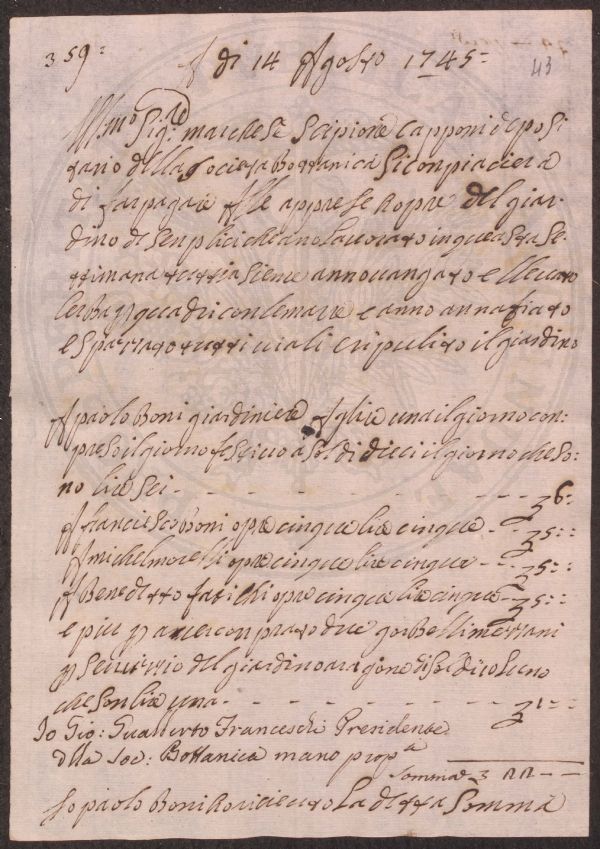 359= A di 14 Agosto 1745= 43
Ill.mo Sig.re marchese Scipione Capponi deposi
tario della Societa Bottanica Si conpiacierà
di far pagare Alle appresse hopre del giar
dino de Senplici che ano lavorato in questa se
ttimana tutti asieme anno vangato e lleuato
lerba p quadri con le marre e anno annafiato
e Spazzato tutti i viali e ripulito il giardino
A paolo Boni giardiniere A glire una il giorno con
preso il giorno festiuo a Soldi dieci il giorno che so
no lire Sei - - - - - - - - ₤ 6=
A franciesco Boni opre cinque lire cinque - - ₤ 5=:
A michel morelli opre cinque lire cinque - - - ₤ 5=:
A Benedetto fatichi opre cinque lire cinque - ₤ 5=:
e piu p auer conprato due gorBelli mezzani
p Seruizio del giardino a ragione di Soldi 10 luno
che son lire una - - - - - - - - ₤ 1=:
Io Gio: Gualberto Franceschi Presidente
dlla Soc: Bottanica mano prop.a
Somma ₤ 22 - -
Io paolo Boni ho riceuuto La detta Somma